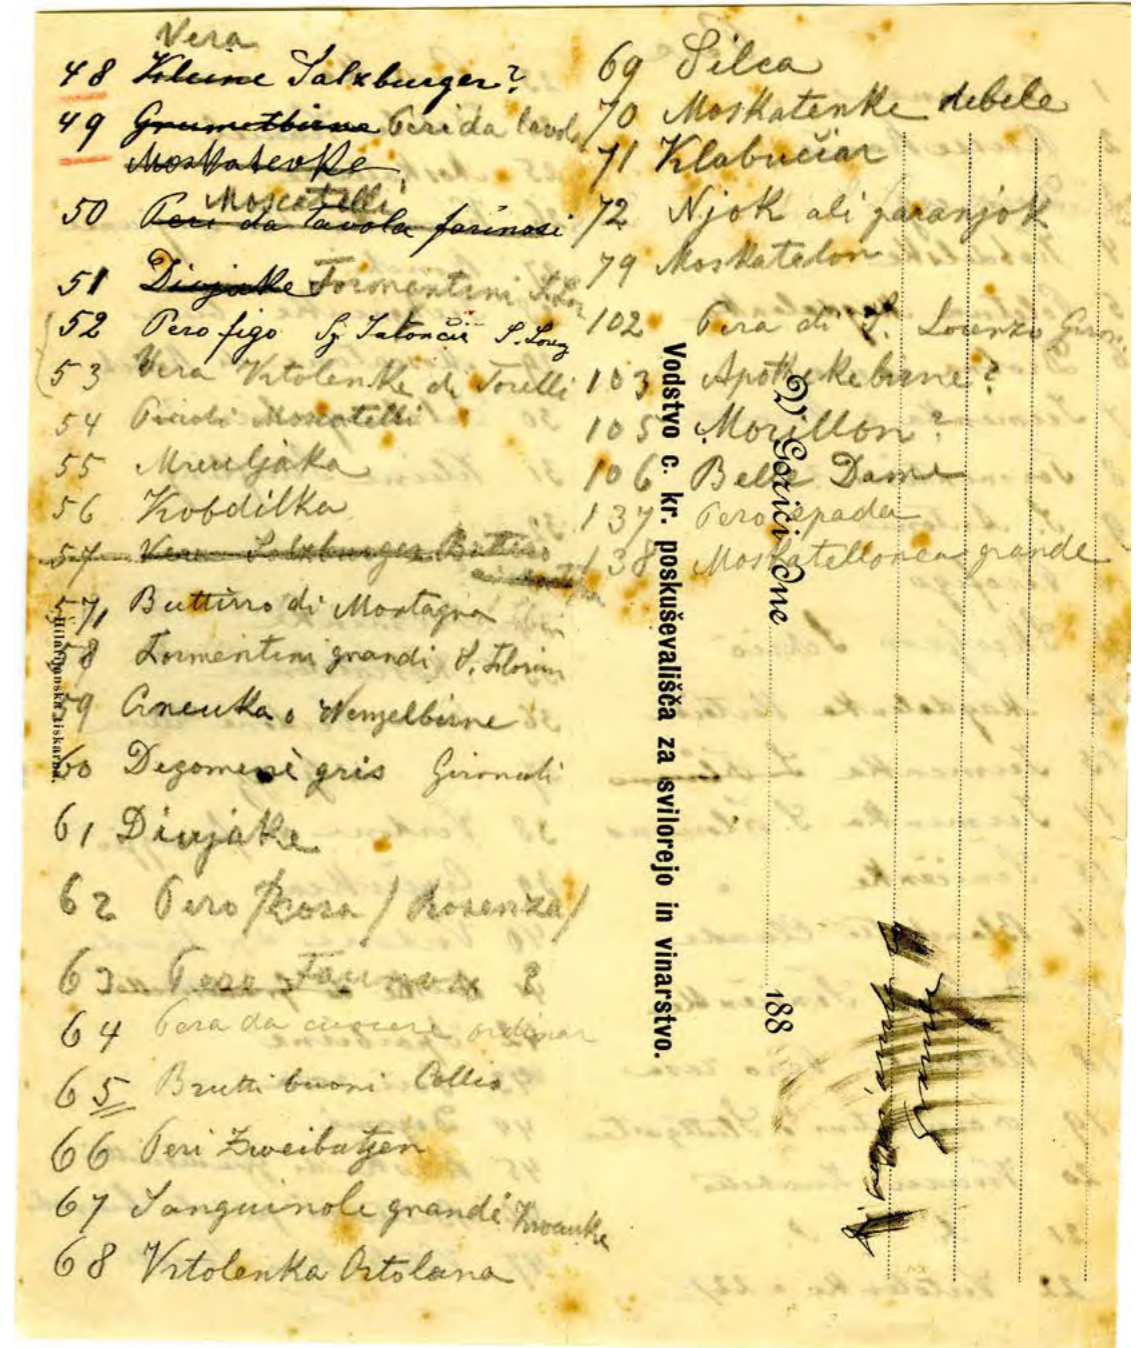 Vera
48 Kleine Salzburger?
49 Grumetbirne Peri da tavola
Moskatevke
Moscatelli
50 Peri da tavola farinosi
51 Divjake Formentini
52 Pero figo S. Lorenz
53 Vera Vrtolenke di Torelli
54 Piccoli Moscatelli
55
56 Kobdilka
57 Vera Salzburger Buttiro
57, Buttirro di Montagna
58 Formentini grandi S. Florian
59 Crneuka o Wenzelbirne
60 gris Gironcoli
61 Divjake
62 Pero Rosa / Rosenza /
63 Pere ?
64 Pera da cuocere ordinar
65 Brutti buoni Collio
66 Peri Zweibatzen
67 Sanguinole grandi
68 Vrtolenka Ortolana
69 Silca
70 Moskatenke debele
71 Klabučiar
72 Njok ali garanjok
79 Moskatedon
102 Pera di S. Lorenzo
103 Apothekebirne?
105 Morillon?
106 Belle Dame
137 Pero spada
138 grande
Vodstvo c. kr. poskuševališča za svilorejo in vinarstvo.
V Gorici dne
188
Hilarijanska tiskarna.